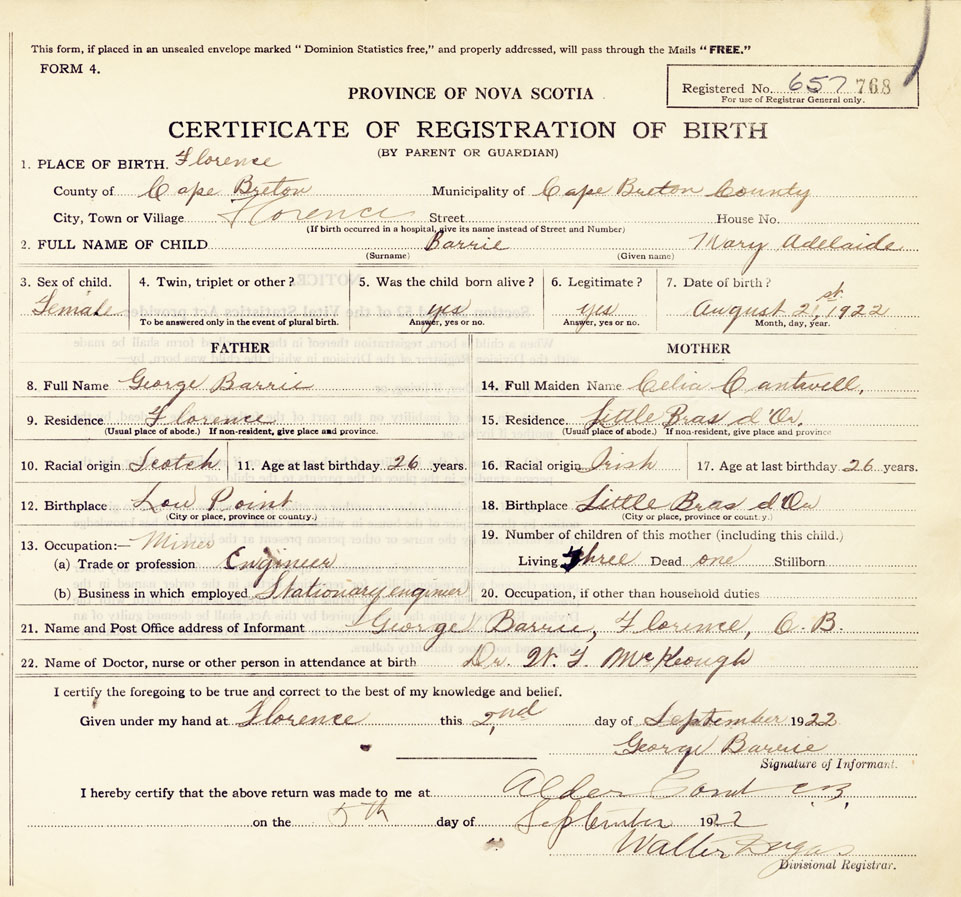 This form, if placed in an unsealed envelope marked "Dominion Statistics free," and properly addressed, will pass through the Mails "FREE."
FORM 4.
Registered No. 657 768
For use of Registrar General only.
PROVINCE OF NOVA SCOTIA
CERTIFICATE OF REGISTRATION OF BIRTH
(BY PARENT OR GUARDIAN)
1. PLACE OF BIRTH. Florence
County of Cape Breton Municipality of Cape Breton County
City, Town or Village Florence Street House No.
(If birth occurred in a hospital, give its name instead of Street and Number)
2. FULL NAME OF CHILD Barrie Mary Adelaide
(Surname) (Given name)
3. Sex of child. 4. Twin, triplet or other? 5. Was the child born alive? 6. Legitimate? 7. Date of birth?
Female yes yes August 21st 1922
To be answered only in the event of plural birth. Answer, yes or no. Answer, yes or no. Month, day, year.
FATHER MOTHER
8. Full Name George Barrie 14. Full Maiden Name Celia Cantwell,
9. Residence Florence 15. Residence Little Bras d'Or,
(Usual place of abode.) If non-resident, give place and province. (Usual place of abode.) If non-resident, give place and province
10. Racial origin Scotch 11. Age at last birthday 26 years. 16. Racial origin Irish 17. Age at last birthday 26 years.
12. Birthplace Low Point 18. Birthplace Little Bras d'Or
(City or place, province or country.) (City or place, province or country.)
13. Occupation:— Miner 19. Number of children of this mother (including this child.)
(a) Trade or profession Engineer Living Three Dead one Stillborn
(b) Business in which employed Stationary engineer 20. Occupation, if other than household duties
21. Name and Post Office address of Informant George Barrie, Florence, C.B.
22. Name of Doctor, nurse or other person in attendance at birth Dr. W. F. McKeough
I certify the foregoing to be true and correct to the best of my knowledge and belief.
Given under my hand at Florence this 2nd day of September 1922
George Barrie
Signature of Informant.
I hereby certify that the above return was made to me at Alder Point C.B.
on the 5th day of September 1922
Walter
Divisional Registrar.